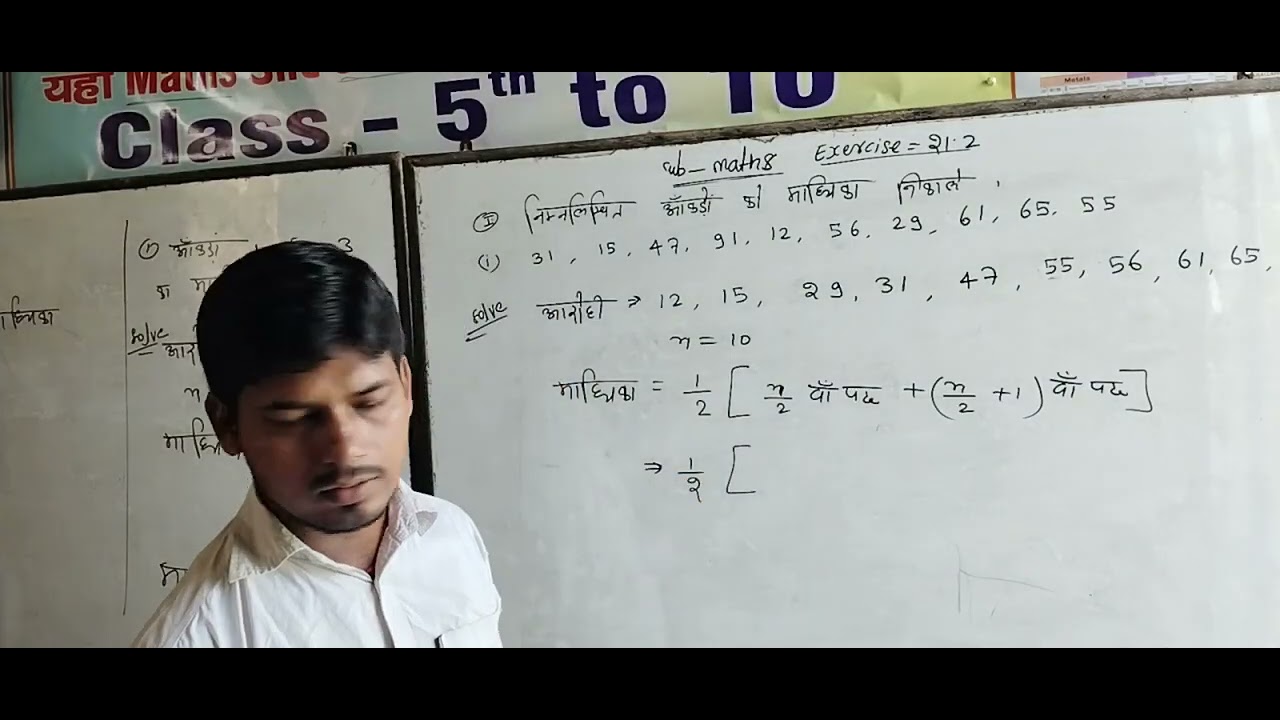 यहाँ Maths और
Class - 5th to 10
Metals
Sub - maths Exercise = 21.2
II निम्नलिखित आँकड़ों को माध्यिका निकाले .
(i) 31, 15, 47, 91, 12, 56, 29, 61, 65, 55
Solve आरोही → 12, 15, 29, 31, 47, 55, 56, 61, 65,
n = 10
माध्यिका = 1/2 [ n/2 वाँ पद + (n/2 + 1) वाँ पद ]
⇒ 1/2 [
① आँकड़ों 3
का
Solve
n
माध्यिका